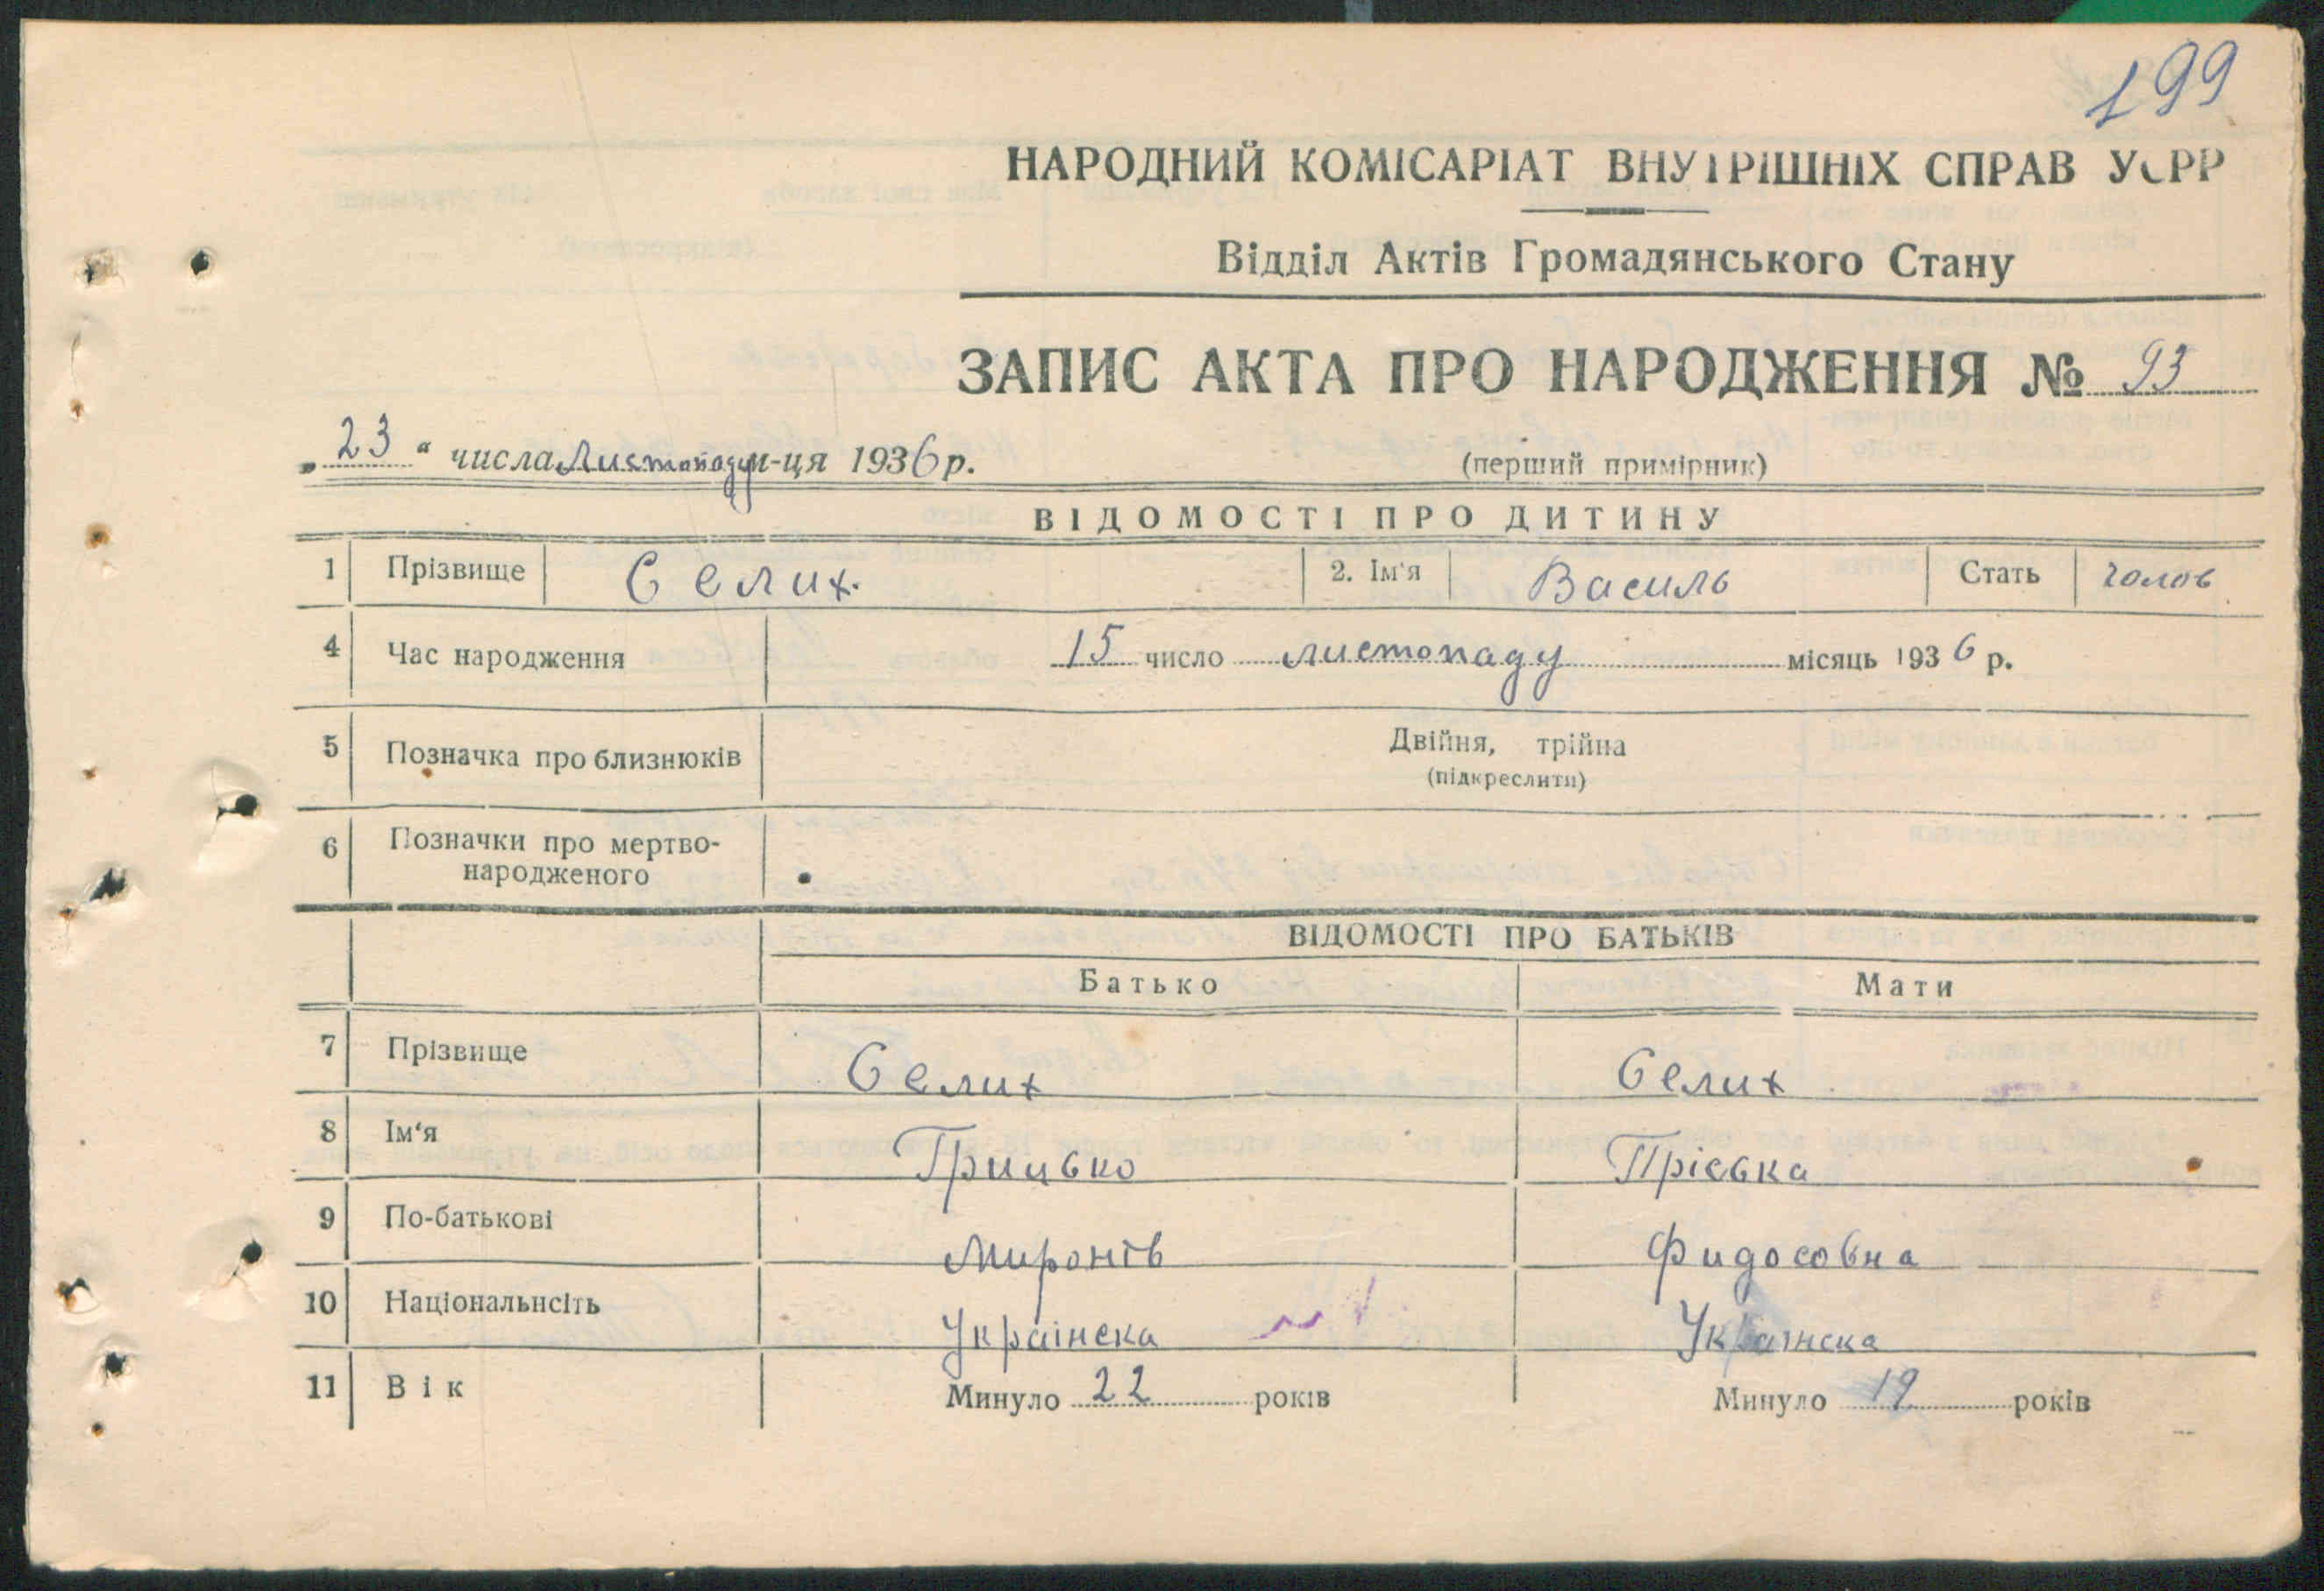 199
НАРОДНИЙ КОМІСАРІАТ ВНУТРІШНІХ СПРАВ УСРР
Відділ Актів Громадянського Стану
ЗАПИС АКТА ПРО НАРОДЖЕННЯ № 93
„23“ числа Листопаду м-ця 1936 р. (перший примірник)
ВІДОМОСТІ ПРО ДИТИНУ
1 Прізвище Селих. 2. Ім'я Василь Стать чолов
4 Час народження 15 число листопаду місяць 1936 р.
5 Позначка про близнюків Двійня, трійна
(підкреслити)
6 Позначки про мертво-
народженого
ВІДОМОСТІ ПРО БАТЬКІВ
Батько Мати
7 Прізвище Селих Селих
8 Ім'я Грицько Пріська
9 По-батькові Миронів Фидосовна
10 Національнсіть Українска Українска
11 Вік Минуло 22 років Минуло 19 років